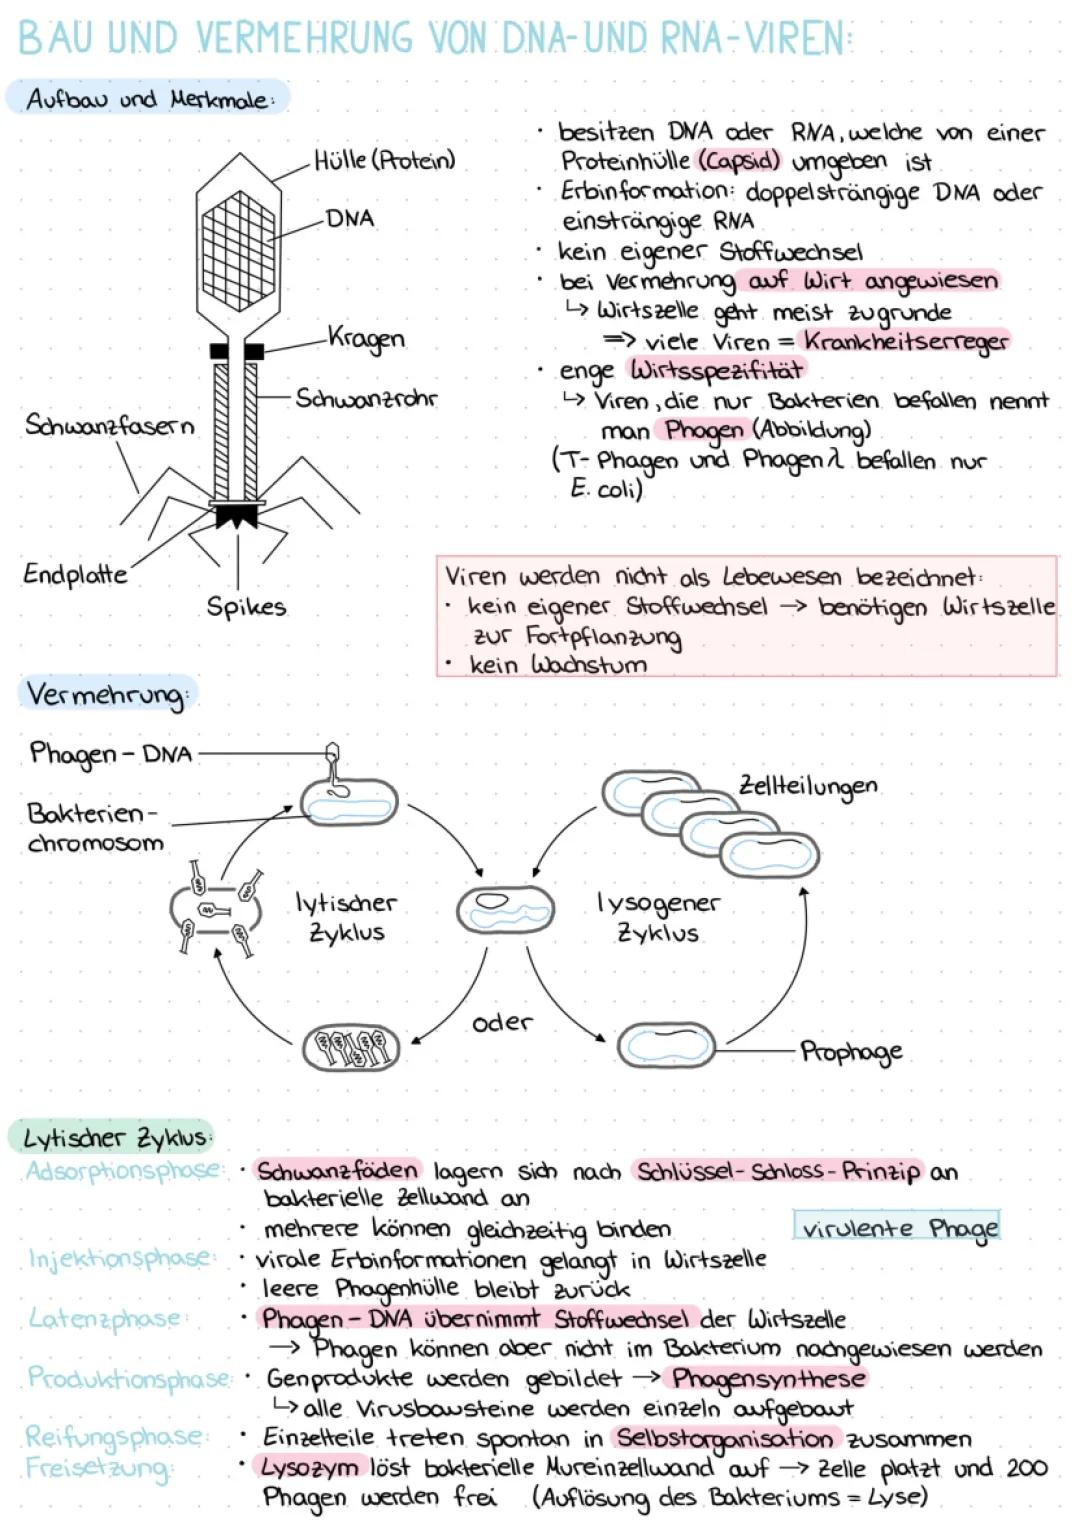 BAU UND VERMEHRUNG VON DNA-UND RNA-VIREN:
Aufbau und Merkmale:
Hülle (Protein)
DNA
Kragen
Schwanzrohr
Schwanzfasern
Endplatte
Spikes
· besitzen DNA oder RNA, welche von einer
Proteinhülle (Capsid) umgeben ist
· Erbinformation: doppelsträngige DNA oder
einsträngige RNA
· kein eigener Stoffwechsel
· bei Vermehrung auf Wirt angewiesen
↳ Wirtszelle geht meist zugrunde
=> viele Viren = Krankheitserreger
· enge Wirtsspezifität
↳ Viren, die nur Bakterien befallen nennt
man Phagen (Abbildung)
(T- Phagen und Phagen λ befallen nur
E. coli)
Viren werden nicht als Lebewesen bezeichnet:
· kein eigener Stoffwechsel → benötigen Wirtszelle
zur Fortpflanzung
· kein Wachstum
Vermehrung:
Phagen - DNA
Bakterien-
chromosom
Zellteilungen
lytischer
Zyklus
lysogener
Zyklus
oder
Prophage
Lytischer Zyklus:
Adsorptionsphase: · Schwanzfäden lagern sich nach Schlüssel- Schloss - Prinzip an
bakterielle Zellwand an
· mehrere können gleichzeitig binden
virulente Phage
Injektionsphase: · virale Erbinformationen gelangt in Wirtszelle
· leere Phagenhülle bleibt zurück
Latenzphase: · Phagen - DNA übernimmt Stoffwechsel der Wirtszelle
→ Phagen können aber nicht im Bakterium nachgewiesen werden
Produktionsphase: · Genprodukte werden gebildet → Phagensynthese
↳ alle Virusbausteine werden einzeln aufgebaut
Reifungsphase: · Einzelteile treten spontan in Selbstorganisation zusammen
Freisetzung: · Lysozym löst bakterielle Mureinzellwand auf → Zelle platzt und 200
Phagen werden frei (Auflösung des Bakteriums = Lyse)